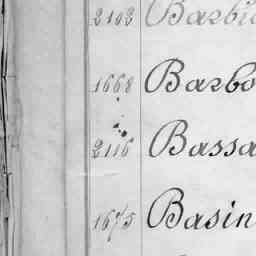 2103 Barbi
1668 Barbo
2116 Bassa
1675 Basin